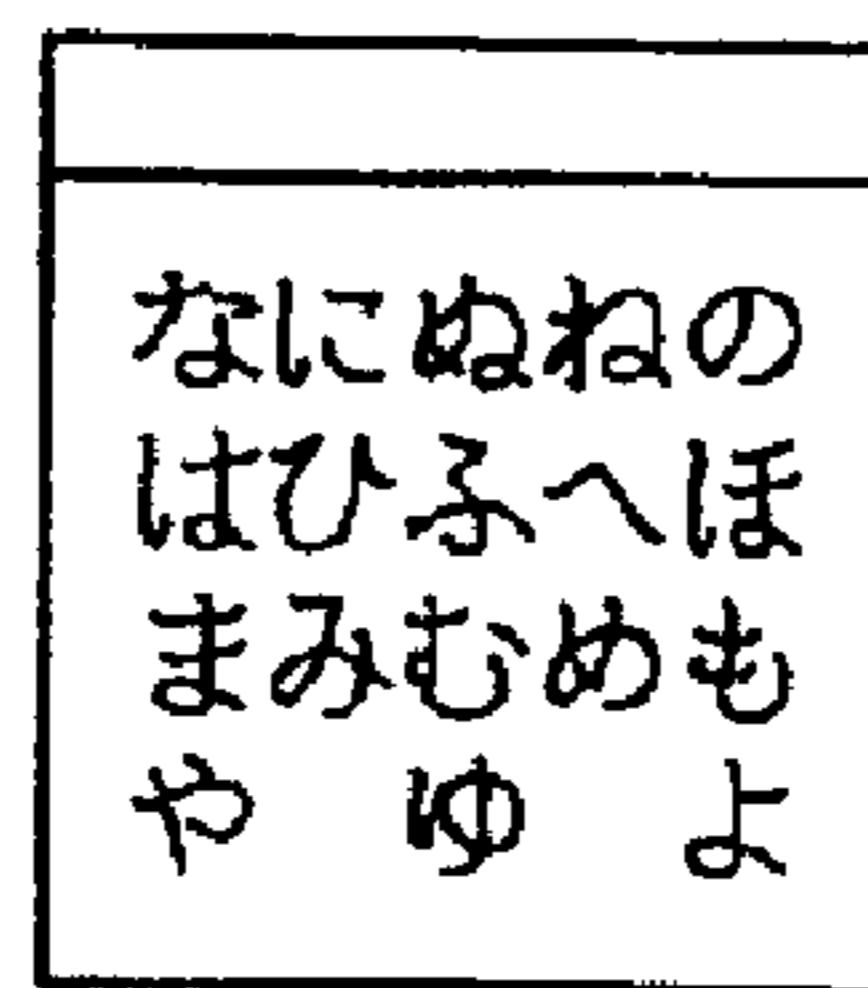 なにぬねの
はひふへほ
まみむめも
や　ゆ　よ